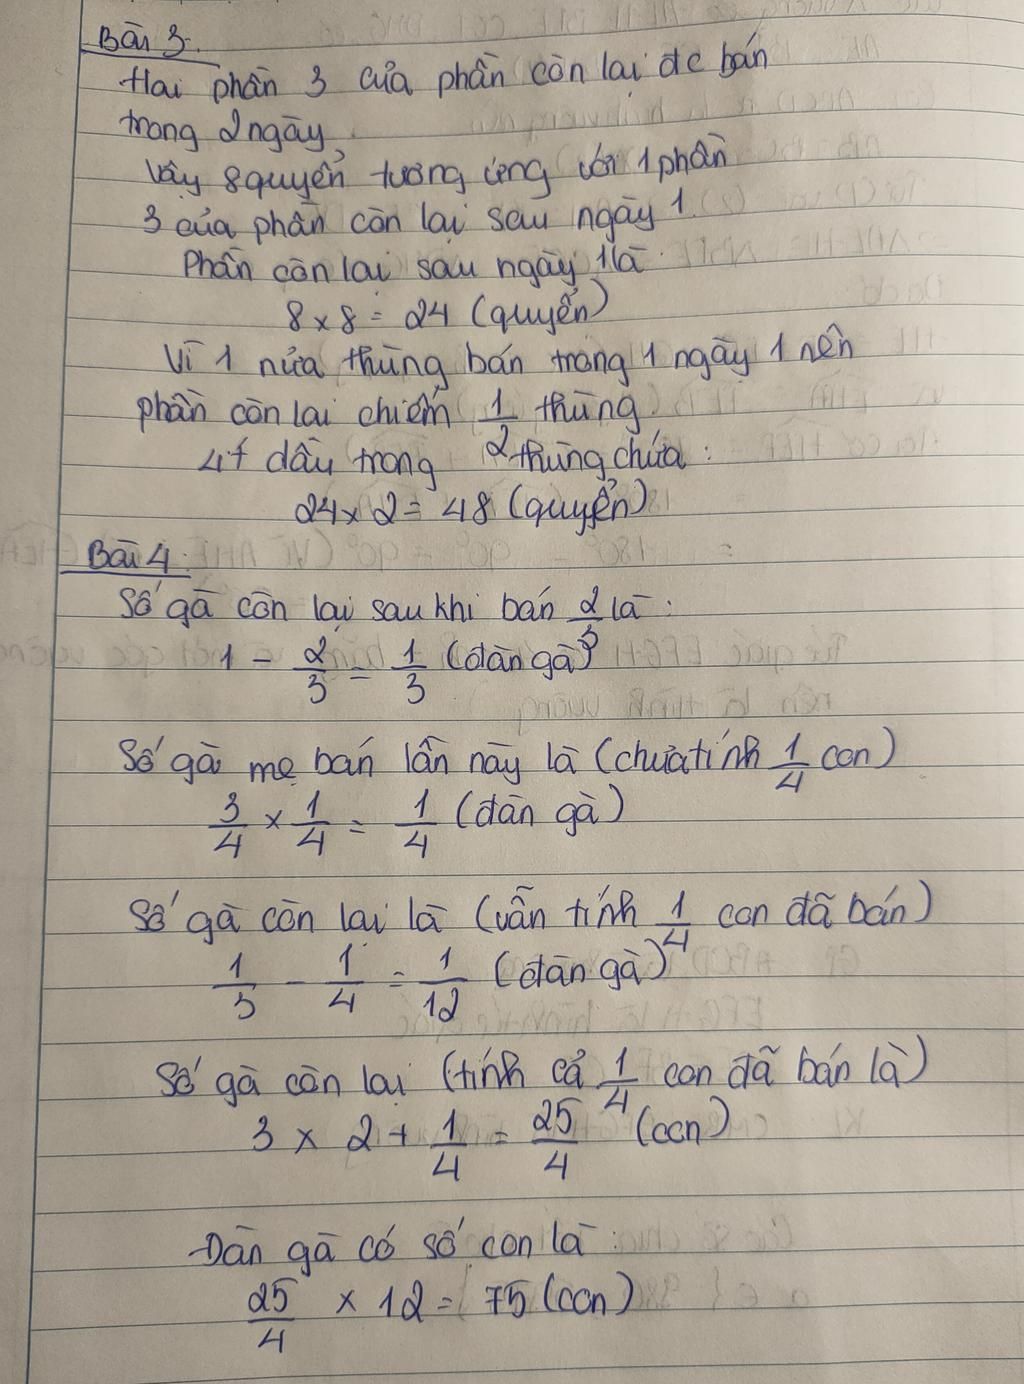 Bài 3.
Hai phần 3 của phần còn lại đc bán
trong 2 ngày.
Vậy 8 quyển tương ứng với 1 phần
3 của phần còn lại sau ngày 1.
Phần còn lại sau ngày 1 là
8 x 8 = 24 (quyển)
Vì 1 nửa thùng bán trong 1 ngày 1 nên
phần còn lại chiếm 1/2 thùng
dầu trong thùng chứa:
24 x 2 = 48 (quyển)
Bài 4:
Số gà còn lại sau khi bán 2/3 là:
1 - 2/3 = 1/3 (đàn gà)
Số gà mẹ bán lần này là (chưa tính 1/4 con)
3/4 x 1/4 = 1/4 (đàn gà)
Số gà còn lại là (vẫn tính 1/4 con đã bán)
1/3 - 1/4 = 1/12 (đàn gà)
Số gà còn lại (tính cả 1/4 con đã bán là)
3 x 2 + 1/4 = 25/4 (con)
Đàn gà có số con là:
25/4 x 12 = 75 (con)